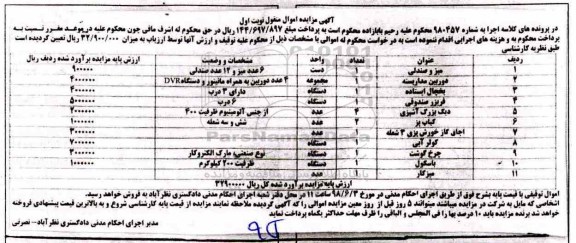 آگهی مزایده اموال منقول نوبت اول
در پرونده های کلاسه اجرا به شماره ۹۸۰۴۵۷ محکوم علیه رحیم بابازاده محکوم است به پرداخت مبلغ ۱۴۴/۶۹۷/۸۹۷ ریال در حق محکوم له اشرف مافی چون محکوم علیه در موعد مقرر نسبت به
پرداخت محکوم به و هزینه های اجرایی اقدام ننموده است به در خواست محکوم له اموالی با مشخصات ذیل از محکوم علیه توقیف و ارزش آنها توسط ارزیاب به میزان ۳۲/۹۰۰/۰۰۰ ریال تعیین گردیده است
طبق نظریه کارشناسی
ردیف عنوان تعداد واحد مشخصات و وضعیت ارزش پایه مزایده بر آورد شده ردیف ریال
۱ میز و صندلی ۱ دست ۶ عدد میز و ۱۲ عدد صندلی
۲ دوربین مداربسته ۱ مجموعه ۴ عدد دوربین به همراه مانیتور و دستگاه DVR
۳ یخچال ایستاده ۱ دستگاه دارای ۳ درب
۴ فریزر صندوقی ۱ دستگاه ۶ درب
۵ دیگ بزرگ آشپزی عدد از جنس آلومینیوم ظرفیت ۴۰۰
۶ کباب پز عدد شش و سه شعله
۷ اجاق گاز خورش پزی ۳ شعله عدد
۸ کولر آبی ۱ دستگاه
۹ چرخ گوشت ۱ دستگاه نوع صنعتی، مارک الکتروکار
۱۰ باسکول ۱ دستگاه ظرفیت ۲۰۰ کیلوگرم
۱۱ میزکار عدد
ارزش پایه مزایده بر آورد شده کل ریال ۳۲۹۰۰۰۰۰
اموال توقیفی با قیمت پایه بشرح فوق از طریق اجرای احکام مدنی در مورخ ۹۸/۶/۳ ساعت ۱۱ در محل دفتر شعبه اجرای احکام مدنی دادگستری نظرآباد به فروش خواهد رسید.
اشخاصی که مایل به شرکت در مزایده میباشند میتوانند ۵ روز قبل از روز معین مزایده اموالی را که آگهی گردیده ملاحظه نمایند مزایده از قیمت پایه کارشناسی شروع و به بالاترین قیمت پیشنهادی فروخته
خواهد شد برنده مزایده باید ۱۰ درصد بها را فی المجلس و الباقی را ظرف مهلت حداکثر یکماه پرداخت نماید
مدیر اجرای احکام مدنی دادگستری نظرآباد – نصرتی